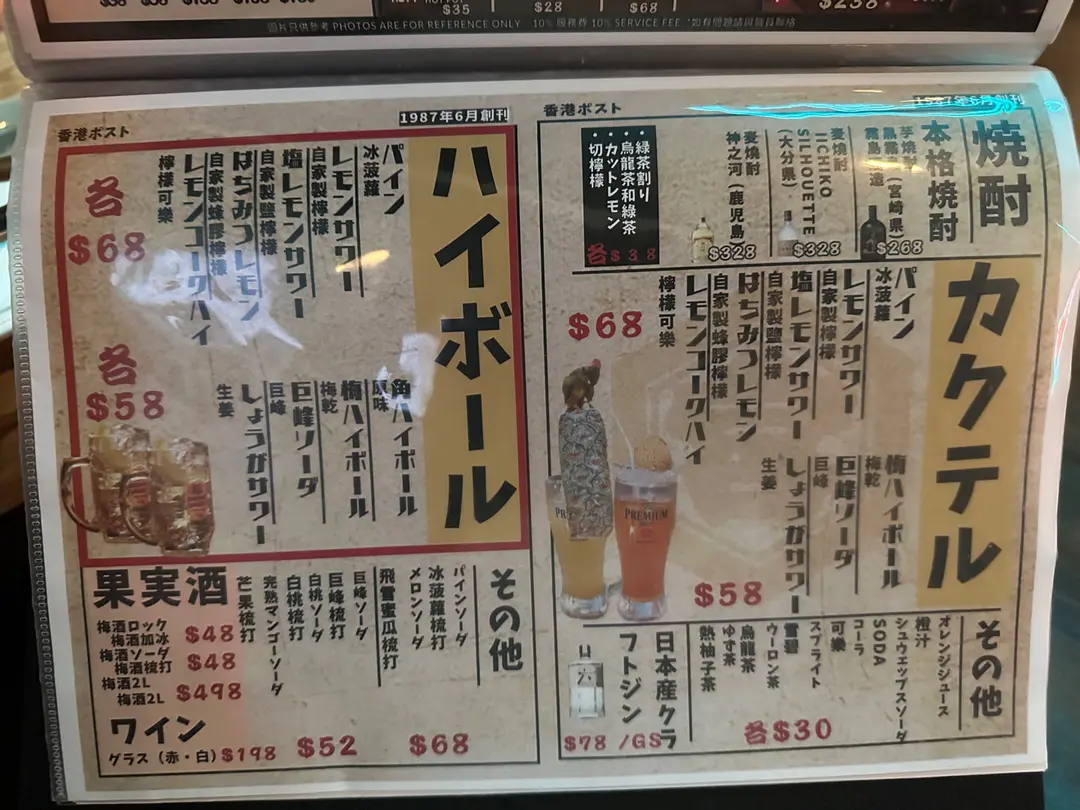 $35
$28
$68
$238
圖片只供參考 PHOTOS ARE FOR REFERENCE ONLY 10% 服務費 10% SERVICE FEE
香港ポスト
1987年6月創刊
ハイボール
パイン
冰菠蘿
レモンサワー
自家製檸檬
塩レモンサワー
自家製鹽檸檬
はちみつレモン
自家製蜂膠檸檬
レモンコークハイ
檸檬可樂
各
$68
角ハイボール
原味
梅ハイボール
梅乾
巨峰ソーダ
巨峰
しょうがサワー
生姜
各
$58
果実酒
梅酒ロック
梅酒加冰
$48
梅酒ソーダ
梅酒梳打
$48
梅酒2L
梅酒2L
$498
ワイン
グラス（赤・白）$198
その他
パインソーダ
冰菠蘿梳打
メロンソーダ
飛雪蜜瓜梳打
$68
巨峰ソーダ
巨峰梳打
白桃ソーダ
白桃梳打
完熟マンゴーソーダ
芒果梳打
$52
香港ポスト
1987年6月創刊
焼酎
本格焼酎
芋焼酎
黒霧島（宮崎県）
$268
麦焼酎
IICHIKO
SILHOUETTE
（大分県）
$328
麦焼酎
神之河（鹿児島）
$328
・緑茶割り
・烏龍茶和綠茶
・カットレモン
・切檸檬
各$38
カクテル
パイン
冰菠蘿
レモンサワー
自家製檸檬
塩レモンサワー
自家製鹽檸檬
はちみつレモン
自家製蜂膠檸檬
レモンコークハイ
檸檬可樂
$68
梅ハイボール
梅乾
巨峰ソーダ
巨峰
しょうがサワー
生姜
$58
PREMIUM
その他
オレンジジュース
橙汁
シュウェップスソーダ
SODA
コーラ
可樂
スプライト
雪碧
ウーロン茶
烏龍茶
ゆず茶
熱柚子茶
各$30
日本産クラ
フトジン
六
$78 /GS